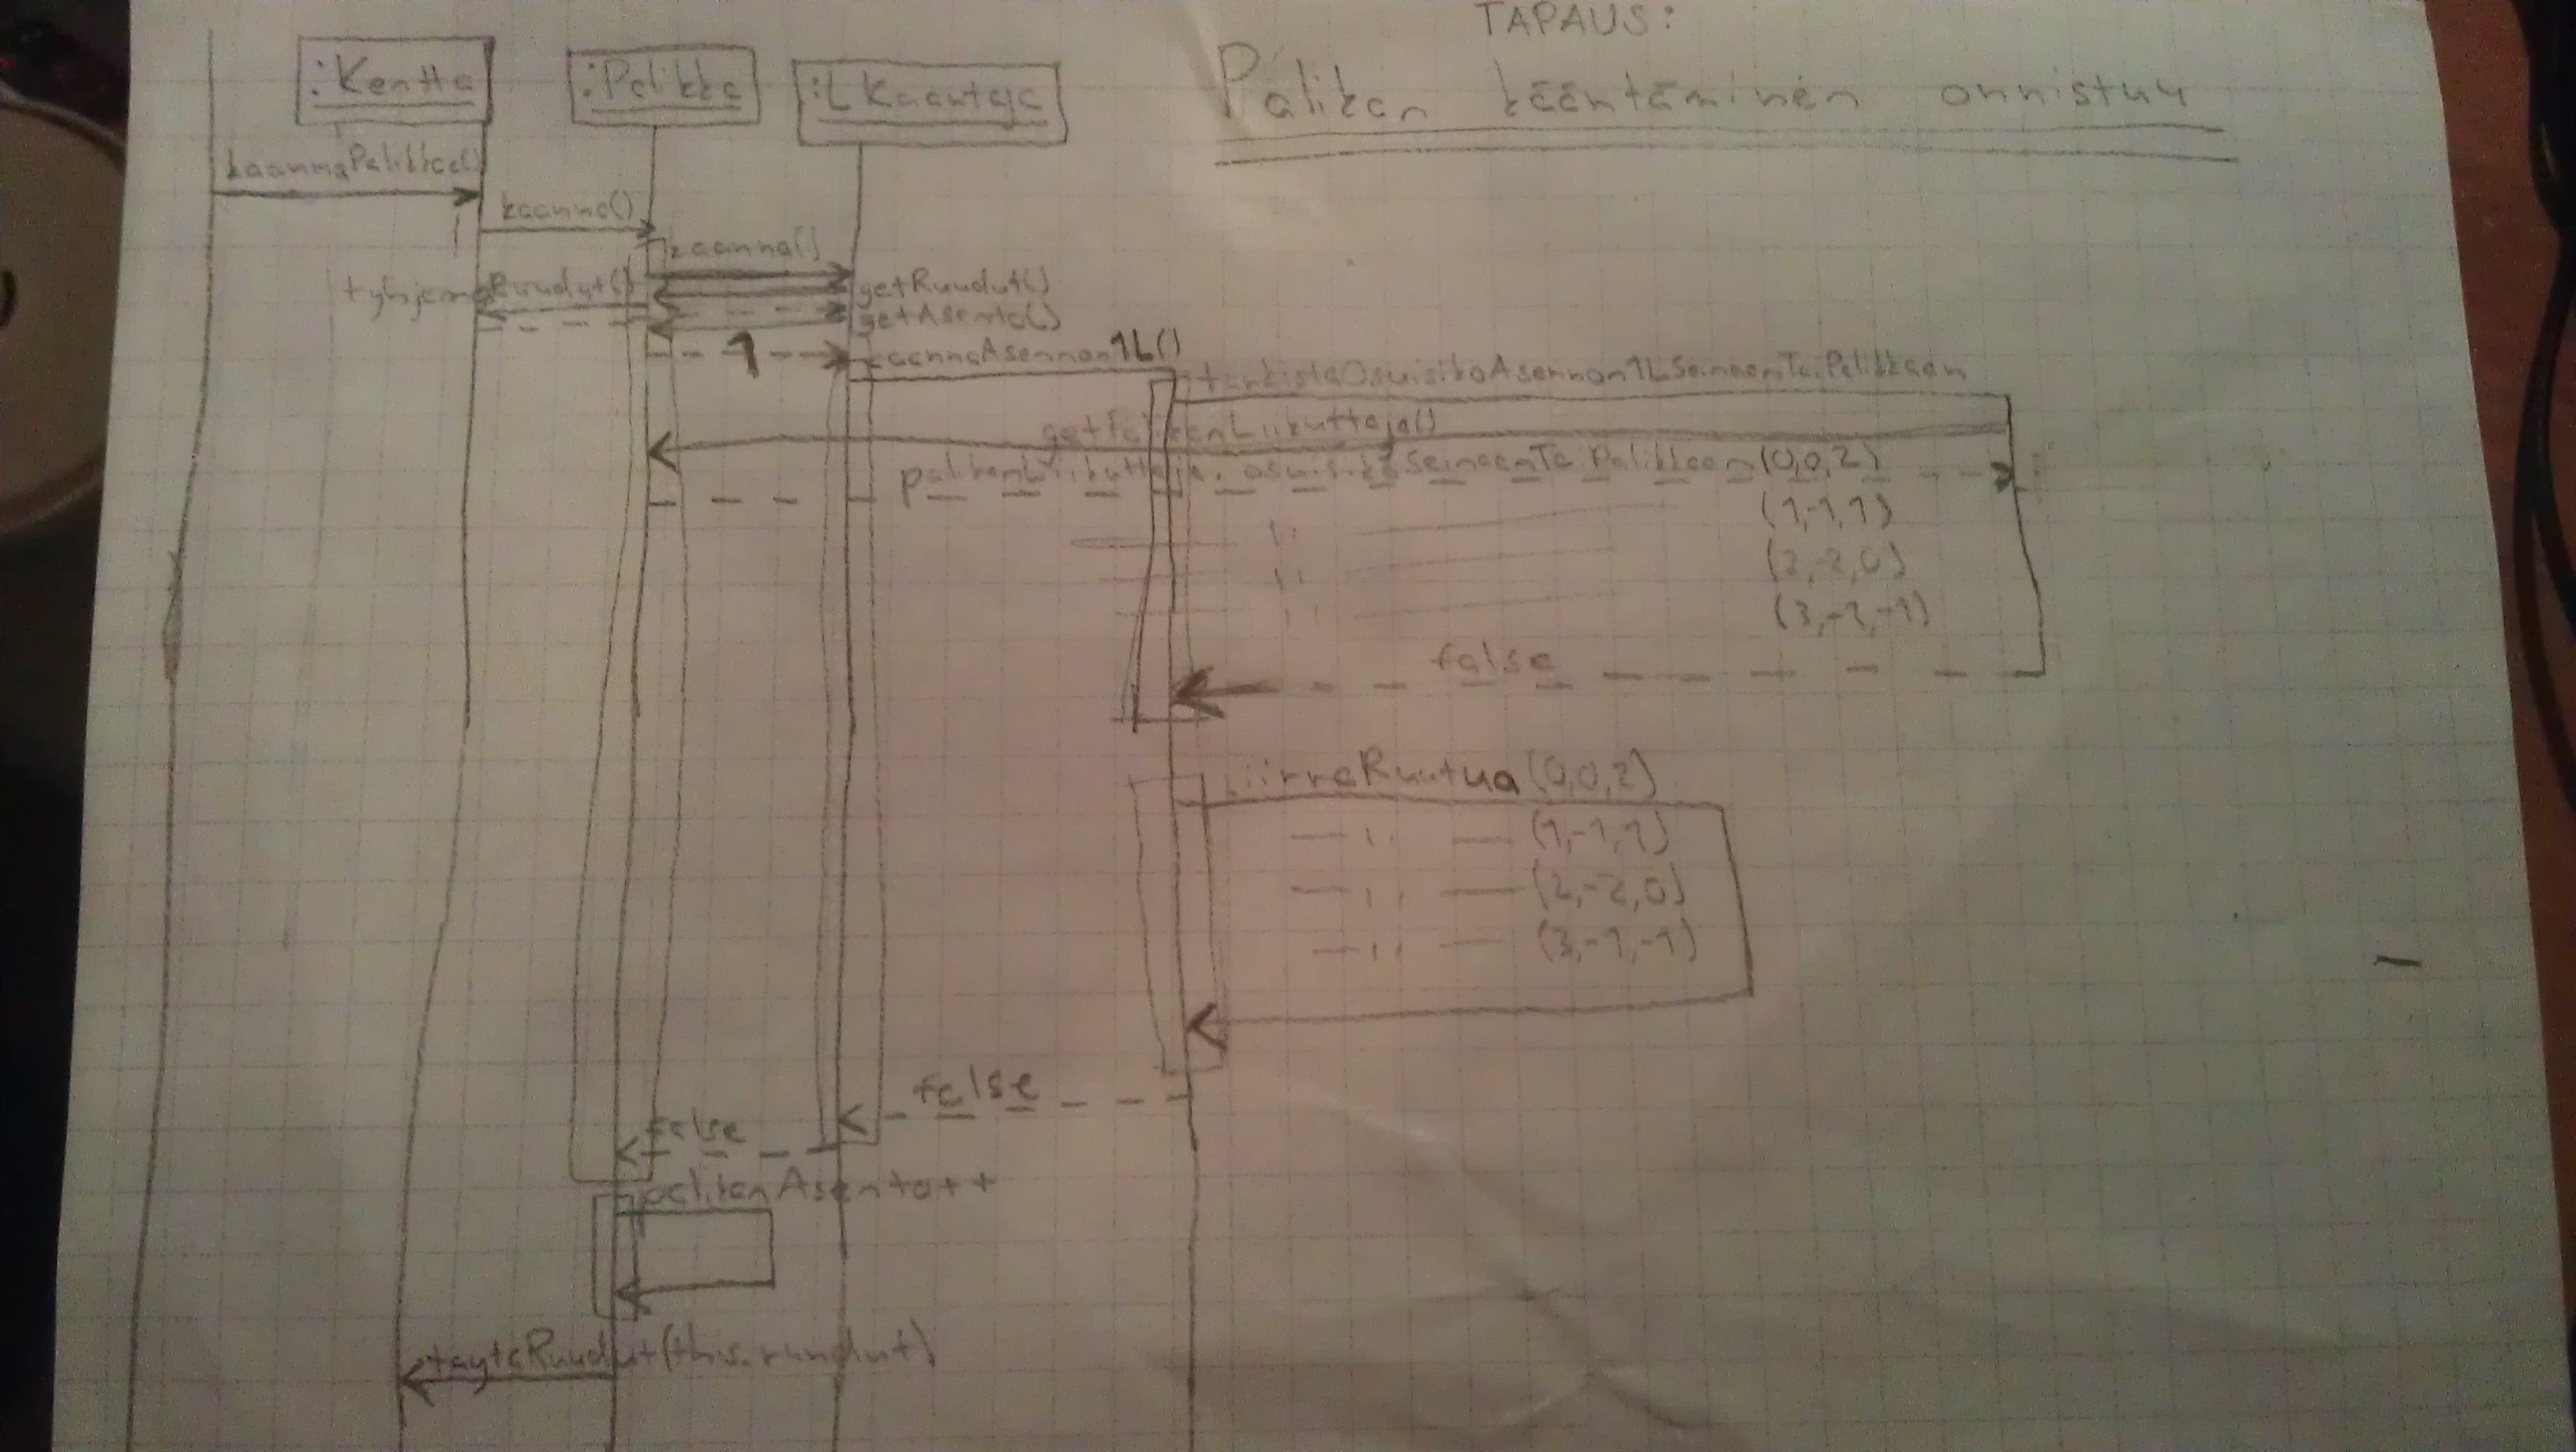 TAPAUS:
Palikan kääntäminen onnistuu
:Kentta
:Palikka
:LKaantaja
kaannaPalikkaa()
kaanna()
kaanna()
tyhjennaRuudut()
getRuudut()
getAsento()
1
kaannaAsennon1L()
tarkistaOsuisikoAsennon1LSeinaanTaiPalikkaan
getPalikanLiikuttaja()
palikanLiikuttaja.osuisikoSeinaanTaiPalikkaan(0,0,2)
— " — (1,-1,1)
— " — (2,-2,0)
— " — (3,-1,-1)
false
siirraRuutua(0,0,2)
— " — (1,-1,1)
— " — (2,-2,0)
— " — (3,-1,-1)
false
false
palikanAsento++
taytaRuudut(this.ruudut)